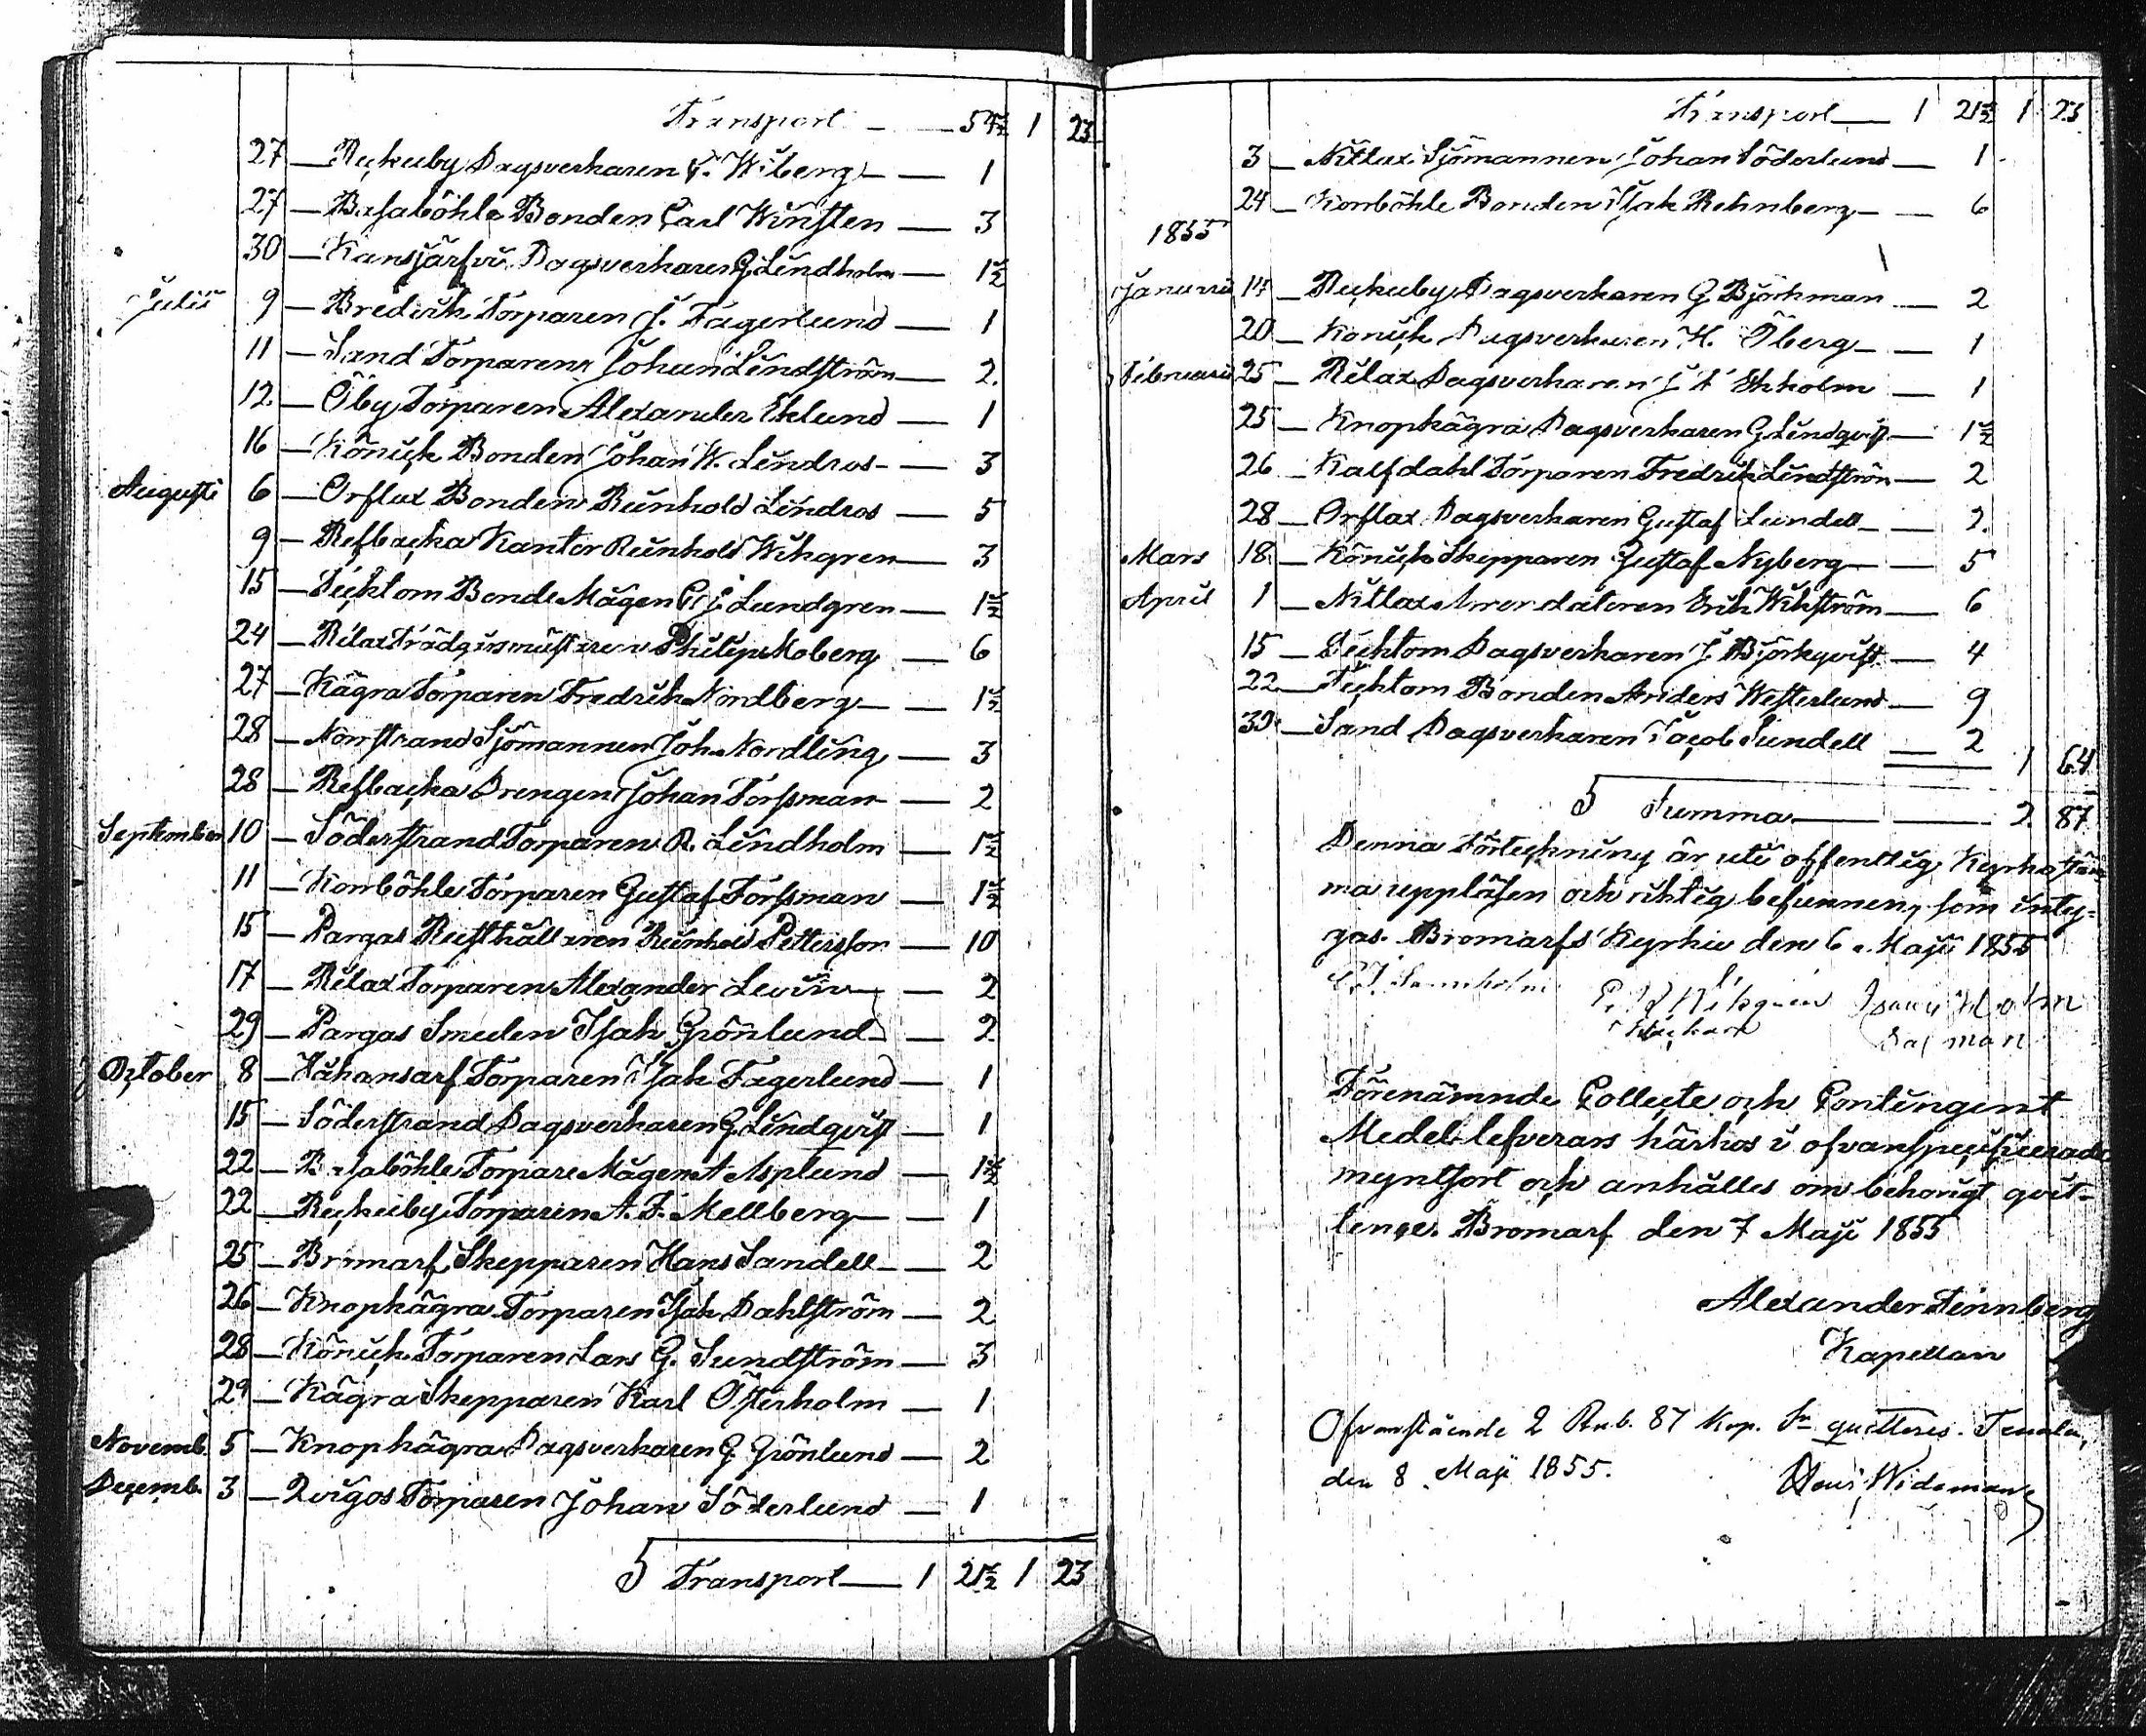 Transport — 54½ 1 23
27 — Reckuby Dagsverkaren F. Wiberg — 1
27 — Basaböhle Bonden Carl Winsten — 3
30 — Kansjärfvi Dagsverkaren G Lindholm — 1½
Julii 9 — Bredvik Torparen J. Fagerlund — 1
11 — Sand Torparen Johan Lindström — 2.
12. — Öby Torparen Alexander Eklund — 1
16 — Könick Bonden Johan W. Lindros — 3
Augusti 6 — Orslax Bonden Reinhold Lindros — 5
9 — Refbacka Kantor Reinhold Wikgren — 3
15 — Täcktom Bonde Mågen G. J. Lundgren — 1½
24 — Rilax Trädgårsmästaren Philip Moberg — 6
27 — Kågra Torparen Fredrik Nordberg — 1½
28 — Norrstrand Sjömannen Joh. Nordling — 3
28 — Refbacka Drengen Johan Forssman — 2
September 10 — Söderstrand Torparen R. Lindholm — 1½
11 — Konböhle Torparen Gustaf Forssman — 1½
15 — Pargas Rusthållaren Reinhold Pettersson — 10
17 — Rilax Torparen Alexander Levin — 2
29 — Pargas Smeden Isak Grönlund — 2
October 8 — Håkansarf Torparen Isak Fagerlund — 1
15 — Söderstrand Dagsverkaren G Lindqvist — 1
22 — Basaböhle Torpare Mågen A Asplund — 1½
22 — Reckuby Torparen A. F. Mellberg — 1
25 — Bromarf Skepparen Hans Sandell — 2
26 — Knopkägra Torparen Isak Dahlström — 2
28 — Könick Torparen Lars G. Sundström — 3
29 — Kägra Skepparen Karl Österholm — 1
Novemb. 5 — Knopkägra Dagsverkaren G. Grönlund — 2
Decemb. 3 — Qvigos Torparen Johan Söderlund — 1
Transport — 1 21½ 1 23
Transport — 1 21½ 1 23
3 — Nitlax Sjömannen Johan Söderlund — 1
24 — Konböhle Bonden Isak Rehnberg — 6
1855
Januarii 14 — Reckuby Dagsverkaren G Björkman — 2
20 — Konick Dagsverkaren K. Öberg — 1
Februarii 25 — Rilax Dagsverkaren J A Ekholm — 1
25 — Knopkägra Dagsverkaren G Lindqvist — 1½
26 — Kalfdahl Torparen Fredrik Lindström — 2
28 — Orslax Dagsverkaren Gustaf Lundell — 2.
Mars 18 — Könick Skepparen Gustaf Nyberg — 5
April 1 — Nitlax Arrendatoren Erik Wikström — 6
15 — Täcktom Dagsverkaren J. Björkqvist — 4
22 — Täcktom Bonden Anders Westerlund — 9
30 — Sand Dagsverkaren Jacob Sundell — 2 1 64
Summa — 2 87
Denna Förteckning är uti offentlig Kyrkostäm
ma uppläsen och riktig befunnen, som inty-
gas. Bromarfs Kyrka den 6 Maji 1855
Isaac Holm
Förenämnde Collecte och Contingent
Medel lefverars härhos i ofvanspecificerade
myntsort och anhålles om behörigt qvit-
tence. Bromarf den 7 Maji 1855
Alexander Finnberg
Kapellan
Ofvanstående 2 Rub. 87 Kop. Sr quitteras. Tenala,
den 8 Maji 1855. Wideman